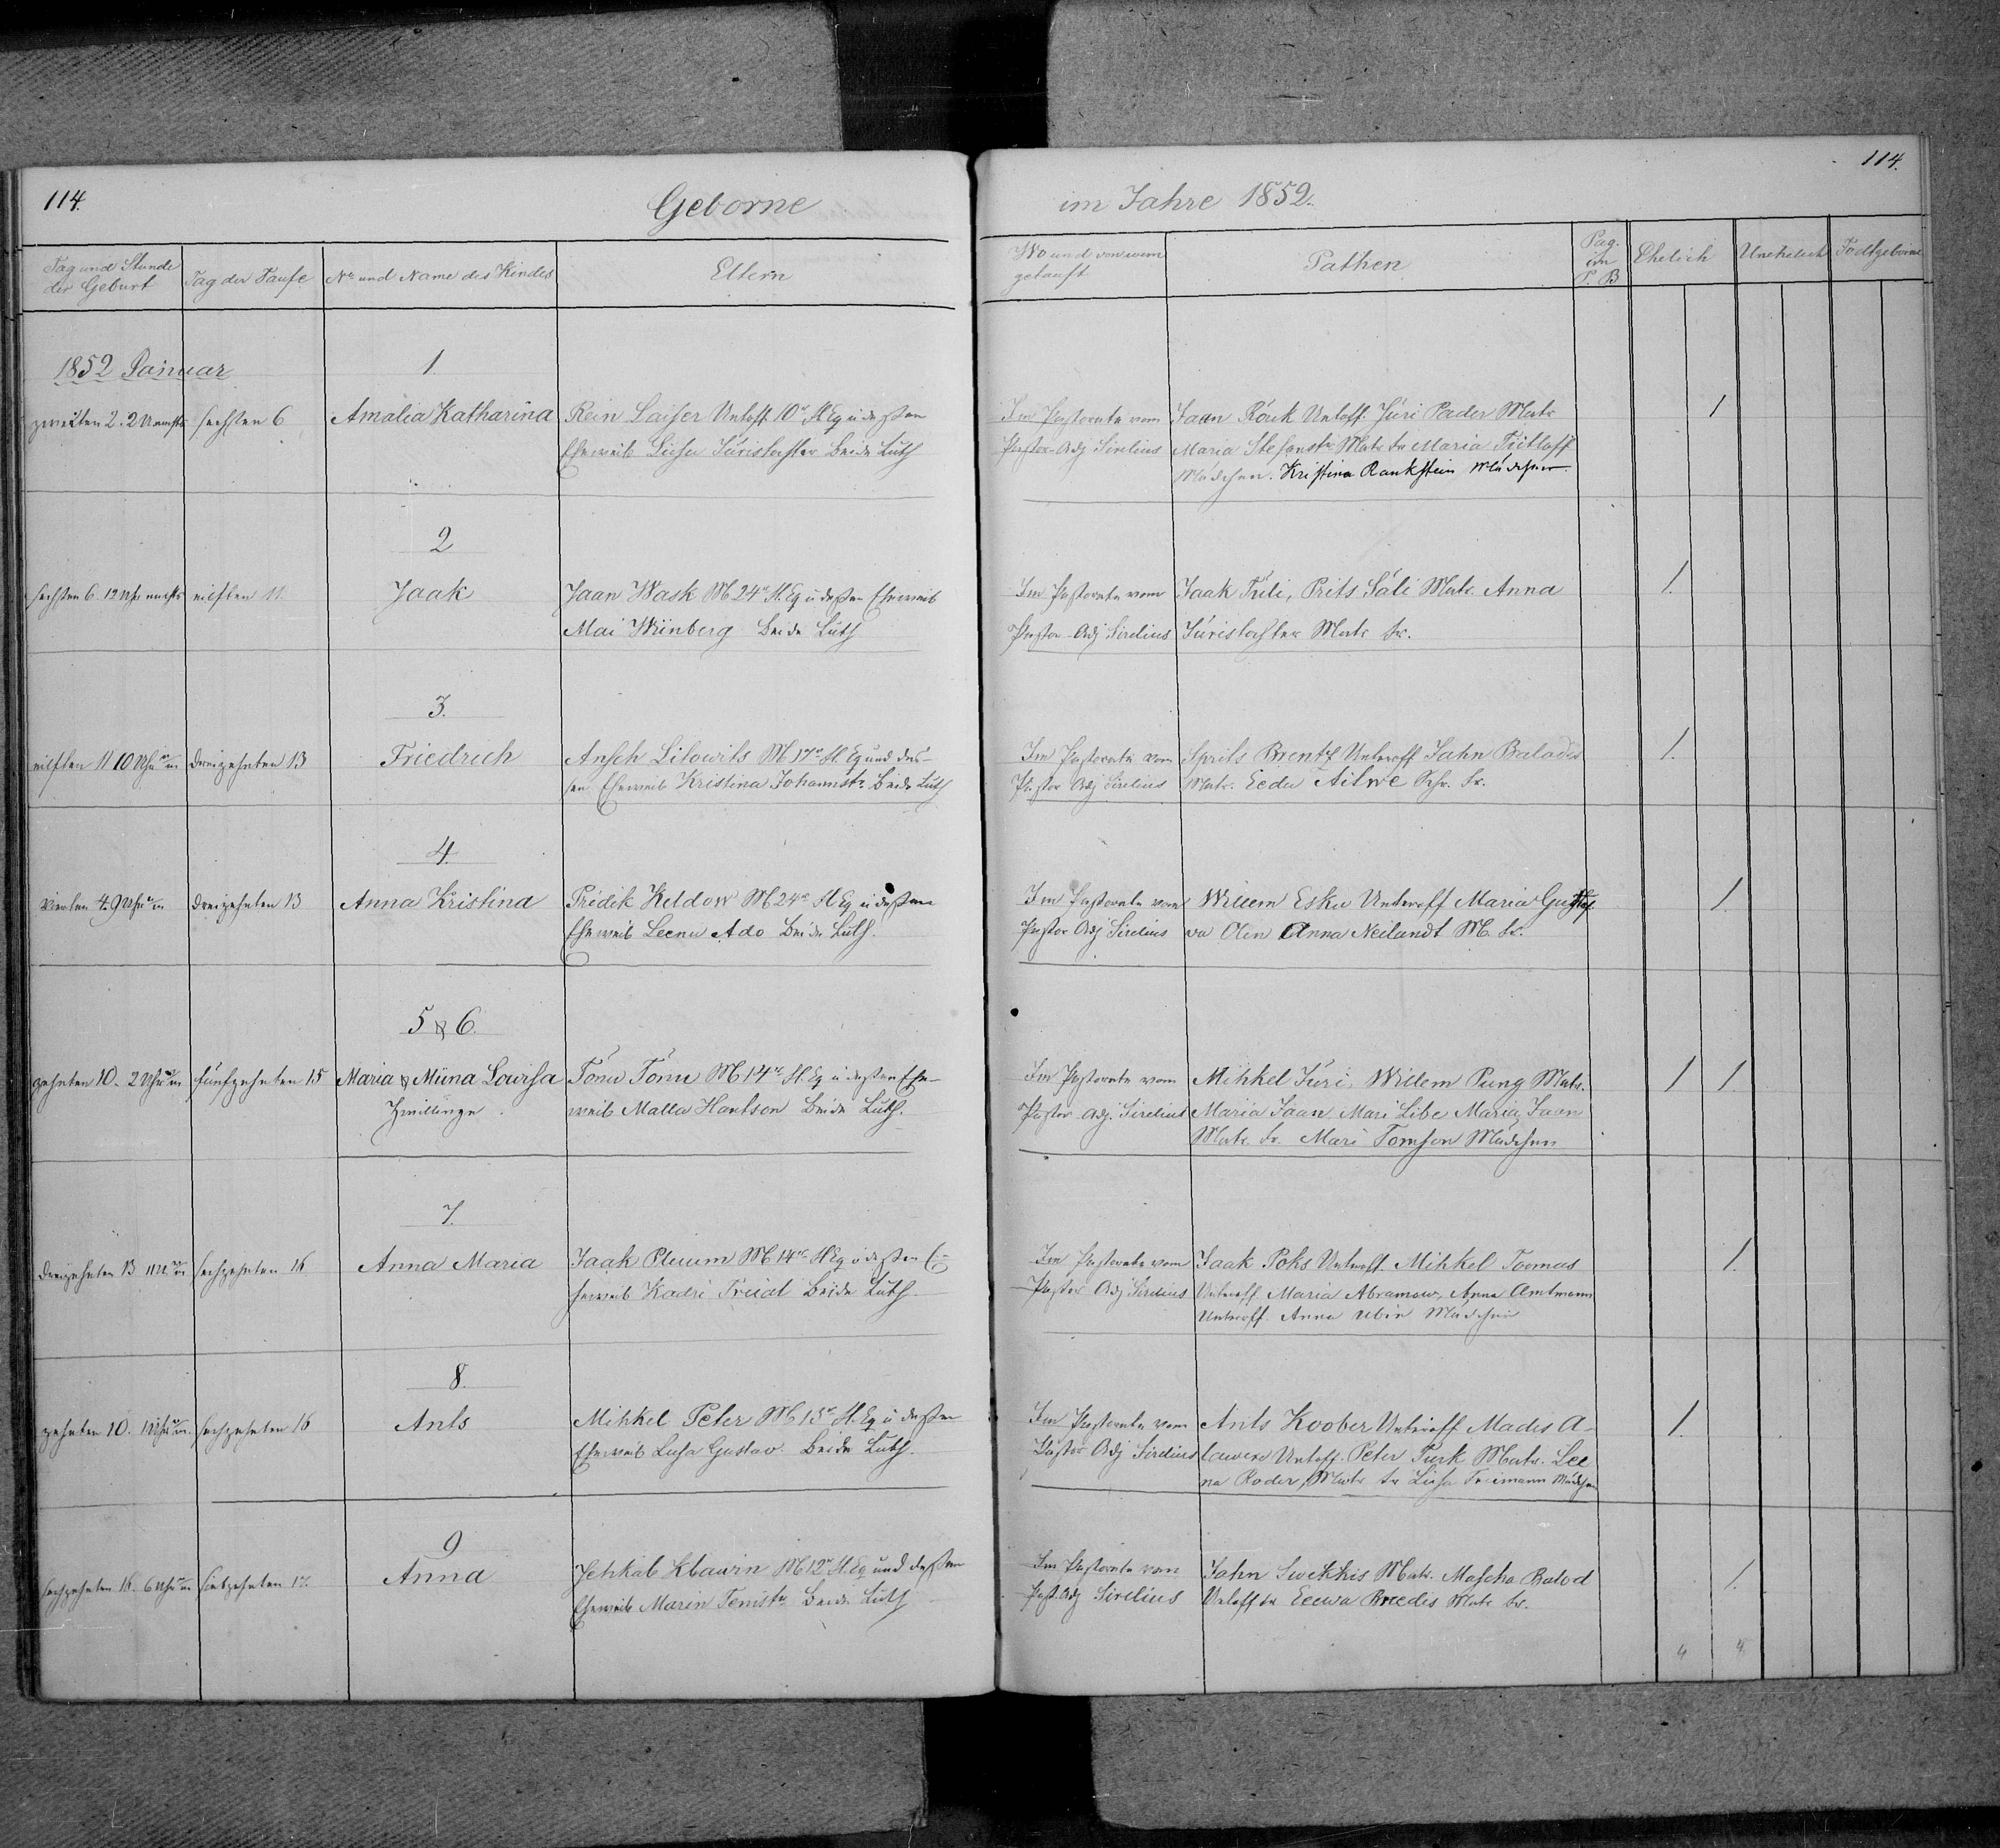 114.
Geborne
im Jahre 1852.
114.
Tag und Stunde
der Geburt
Tag der Taufe
No und Name des Kindes
Eltern
Wo und von wem
getauft
Pathen
Pag.
im
P. B
Ehelich
Unehelich
Todtgeborne
1852 Januar
1.
zweiten 2. 2 sechsten 6
Amalia Katharina
Rein Laiser Untoff. 10n Fl Eq u deßen
Eheweib Liesa Jüristochter Beide Luth
Im Pastorate vom
Pastor-Adj Sirelius
Jaan Röuk Untoff. Jüri Pader Matr.
Maria Stefanstr Matr. fr Maria
Mädchen. Kristina Rankstein Mädchen.
1
2
sechsten 6. 12 Uhr nachts eilften 11.
Jaak
Jaan Wask M 24n Fl. Eq u deßen Eheweib
Mai Wiinberg Beide Luth
Im Pastorate vom
Pastor-Adj Sirelius
Jaak Prits Säli Matr. Anna
Jüristochter Matr. fr.
1.
3.
eilften 11 10 Uhr dreizehnten 13
Friedrich
Ansch Lilowits M 17n Fl. Eq und des-
sen Eheweib Kristina Johannstr. Beide Luth
Im Pastorate vom
Pastor Adj Sirelius
Sprits Unteroff Jahn Balodis
Matr. Eedu Aitwe fr.
1.
4.
vierten 4. 9 Uhr dreizehnten 13
Anna Kristina
Pridik Keldow M 24n Fl Eq u deßen
Eheweib Leenu Ado Beide Luth.
Im Pastorate vom
Pastor Adj Sirelius
Willem Esku Unteroff Maria
Anna Neilandt M. fr.
1.
5 & 6.
zehnten 10. 2 Uhr fünfzehnten 15
Maria & Miina Lowisa
Zwillinge.
Tönu Tönu M 14n Fl. Eq u deßen Ehe-
weib Malla Hantson Beide Luth.
Im Pastorate vom
Pastor Adj. Sirelius
Mihkel Jüri, Willem Pung Matr.
Maria Jaan Mari Libe Maria Jaan
Matr. fr. Mari Tomson Mädchen
1 1
7.
dreizehnten 13 sechzehnten 16
Anna Maria
Jaak Ploom M 14n Fl Eq u deßen E-
heweib Kadri Beide Luth.
Im Pastorate vom
Pastor Adj Sirelius
Jaak Poks Unteroff. Mihkel Toomas
Unteroff Maria Abramow, Anna Amtmann
Unteroff. Anna Mädchen
1.
8.
zehnten 10. sechzehnten 16
Ants
Mihkel Peter M 15n Fl. Eq u deßen
Eheweib Gustav. Beide Luth.
Im Pastorate vom
Pastor Adj Sirelius
Ants Koober Unteroff Madis A-
Untoff. Peter Turk Matr. Lee
na Roder, Matr fr Liesa Mädchen
1.
9
sechzehnten 16. 6 Uhr siebzehnten 17.
Anna
Jehkab Klawin M 12n Fl. Eq und deßen
Eheweib Maren Tenistr. Beide Luth
Im Pastorate vom
Past. Adj Sirelius
Jahn Matr. Mascha Balod
Untoff fr Eewa Breedis Matr. fr.
1.
4 4.